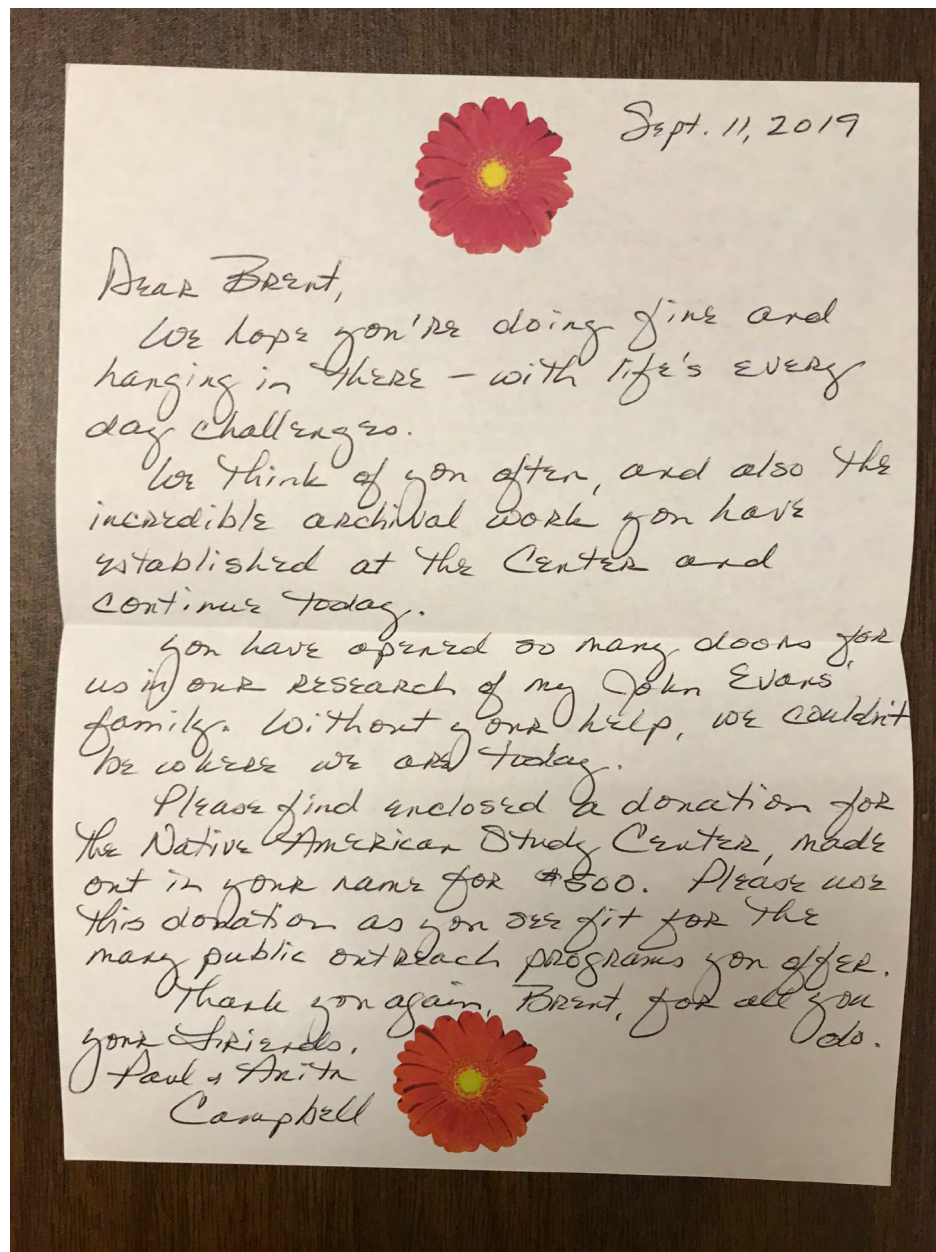 Sept. 11, 2019
Dear Brent,
We hope you're doing fine and
hanging in there – with life's every
day challenges.
We think of you often, and also the
incredible archival work you have
established at the Center and
continue today.
You have opened so many doors for
us in our research of my John Evans
family. Without your help, we couldn't
be where we are today.
Please find enclosed a donation for
the Native American Study Center, made
out in your name for $500. Please use
this donation as you see fit for the
many public outreach programs you offer.
Thank you again, Brent, for all you
do.
Your Friends,
Paul & Anita
Campbell